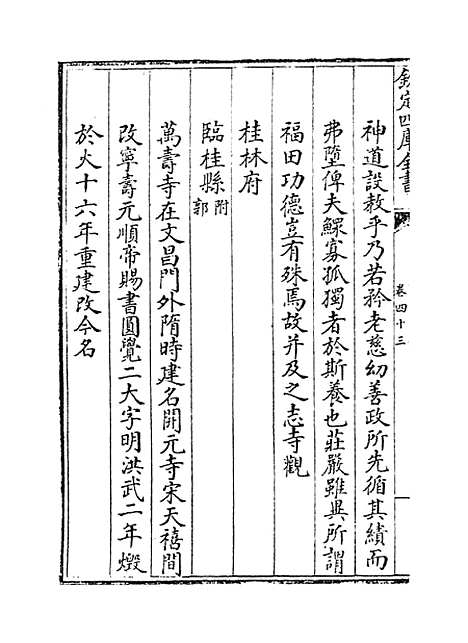 欽定四庫全書
卷四十三
神道設教乎乃若矜老慈幼善政所先循其績而
弗墮俾夫鰥寡孤獨者於斯養也莊嚴雖異所謂
福田功德豈有殊焉故并及之志寺觀
桂林府
臨桂縣附郭
萬壽寺在文昌門外隋時建名開元寺宋天禧間
改寧壽元順帝賜書圓覺二大字明洪武二年燬
於火十六年重建改今名